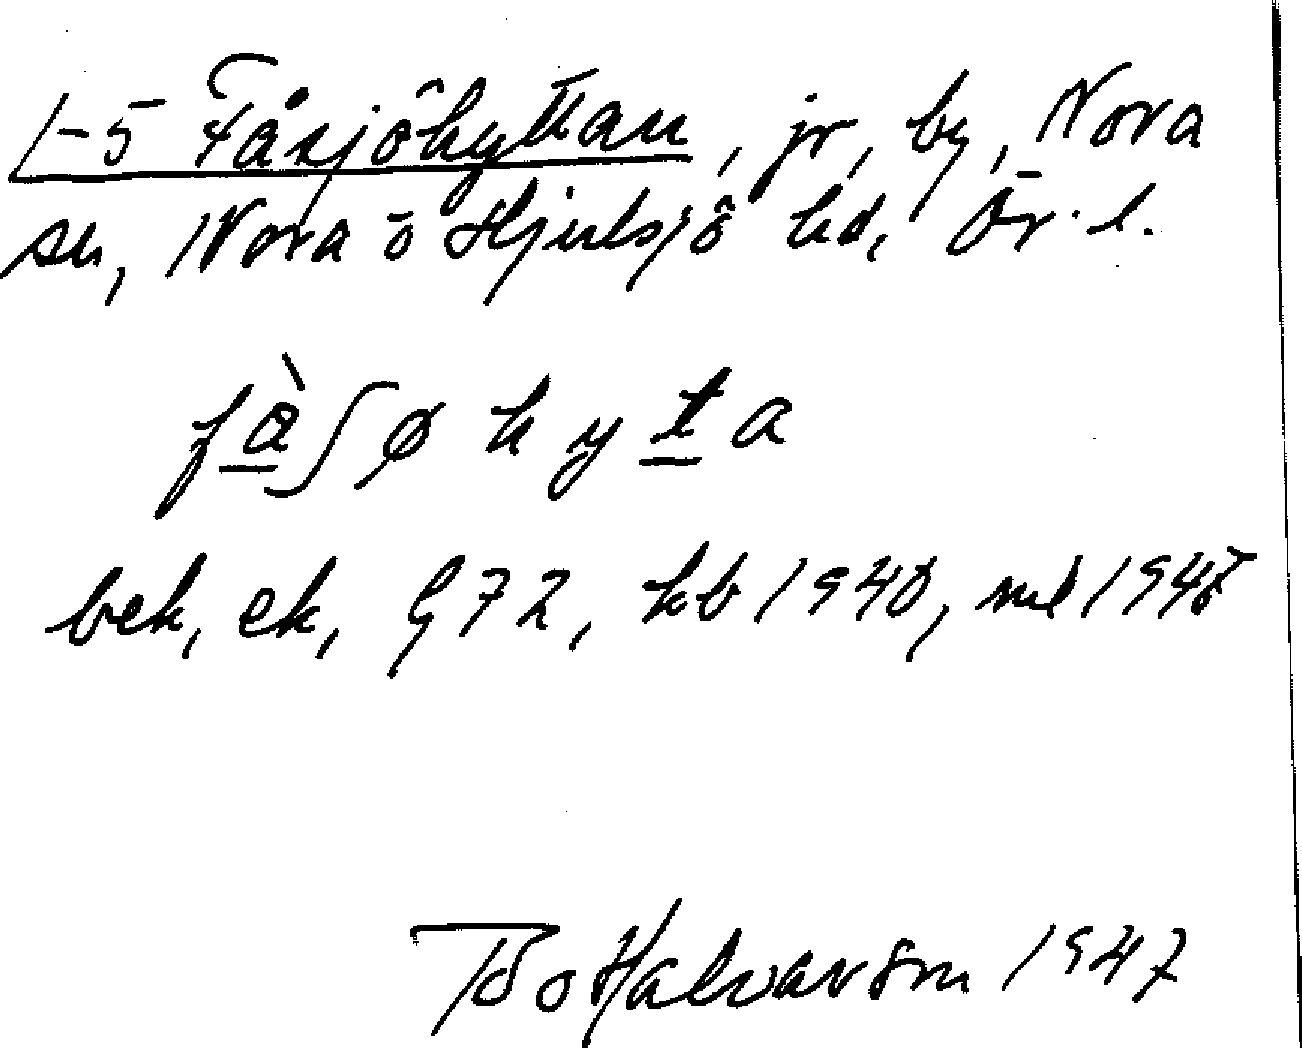 1-5 Fåsjöhyttan, jr, by, Nora
sn, Nora o Hjulsjö hd, Ör. l.
fà̱ʃøhyṯa
bek, ek, G 72, kb 1940, ml 1947
Bo Halvarson 1947